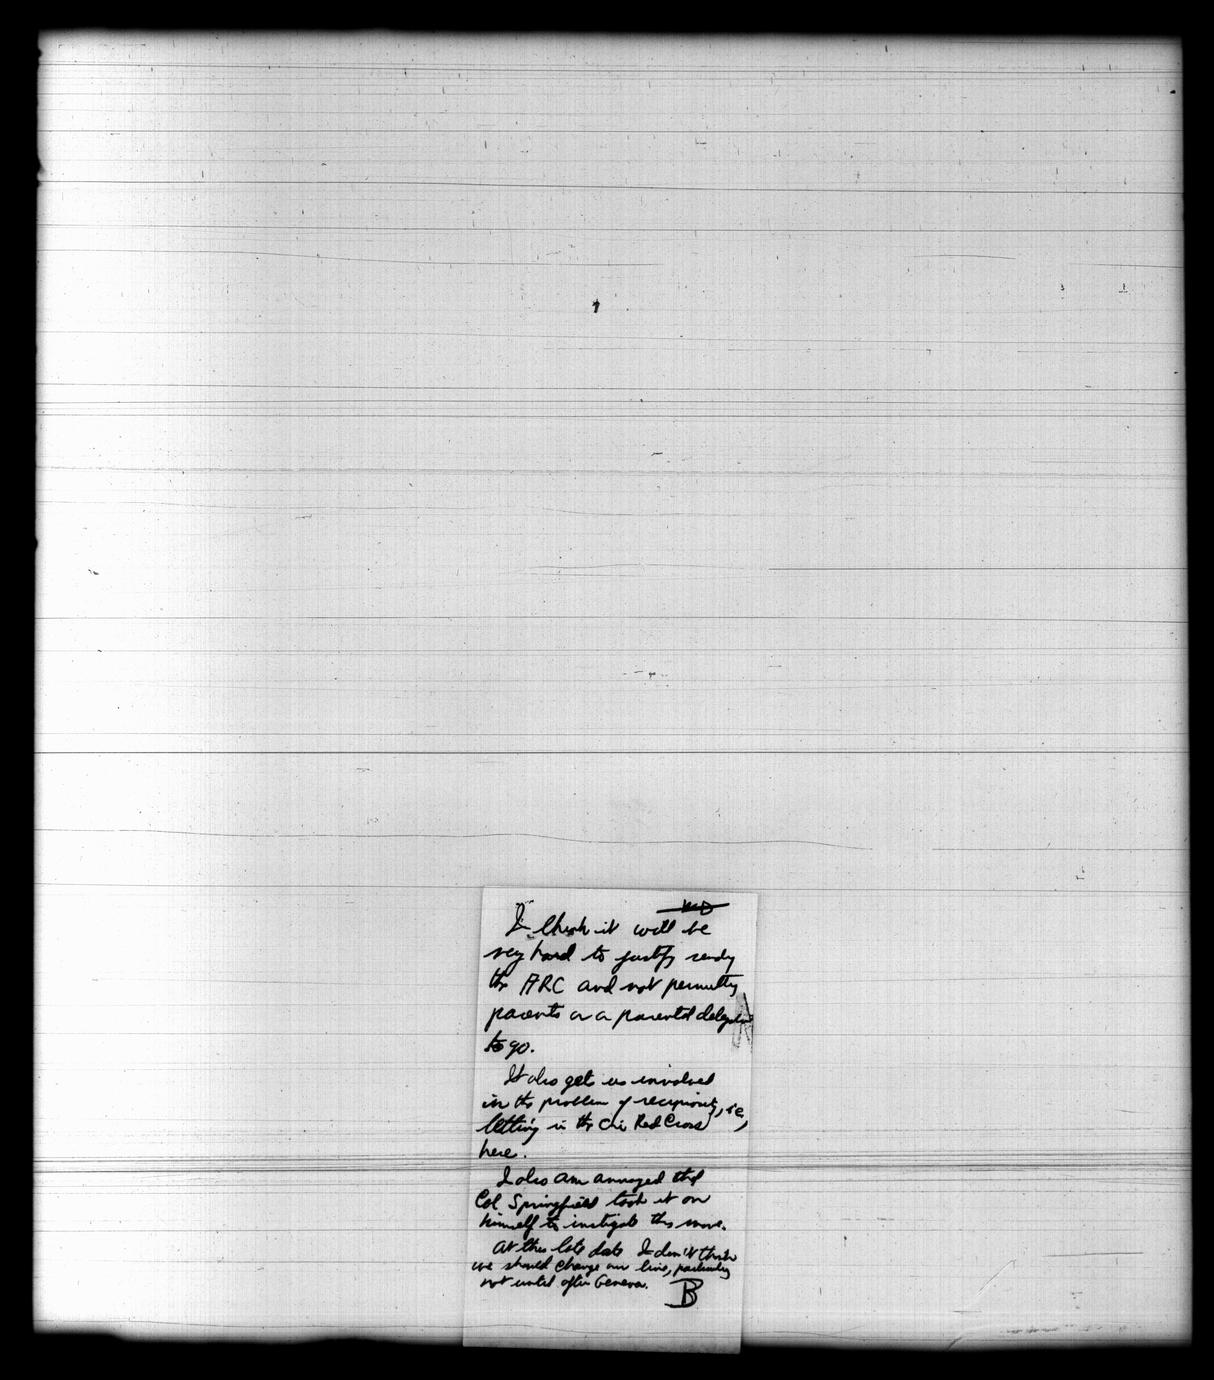 I think it will be
very hard to justify sendg
the ARC and not permittg
parents or a parental delegation
to go.
It also gets us involved
in the problem of reciprocity, i.e.,
letting in the Chi Red Cross
here.
I also am annoyed that
Col. Springfield took it on
himself to instigate this move.
At this late date I don't think
we should change our line, particularly
not until after Geneva.
B